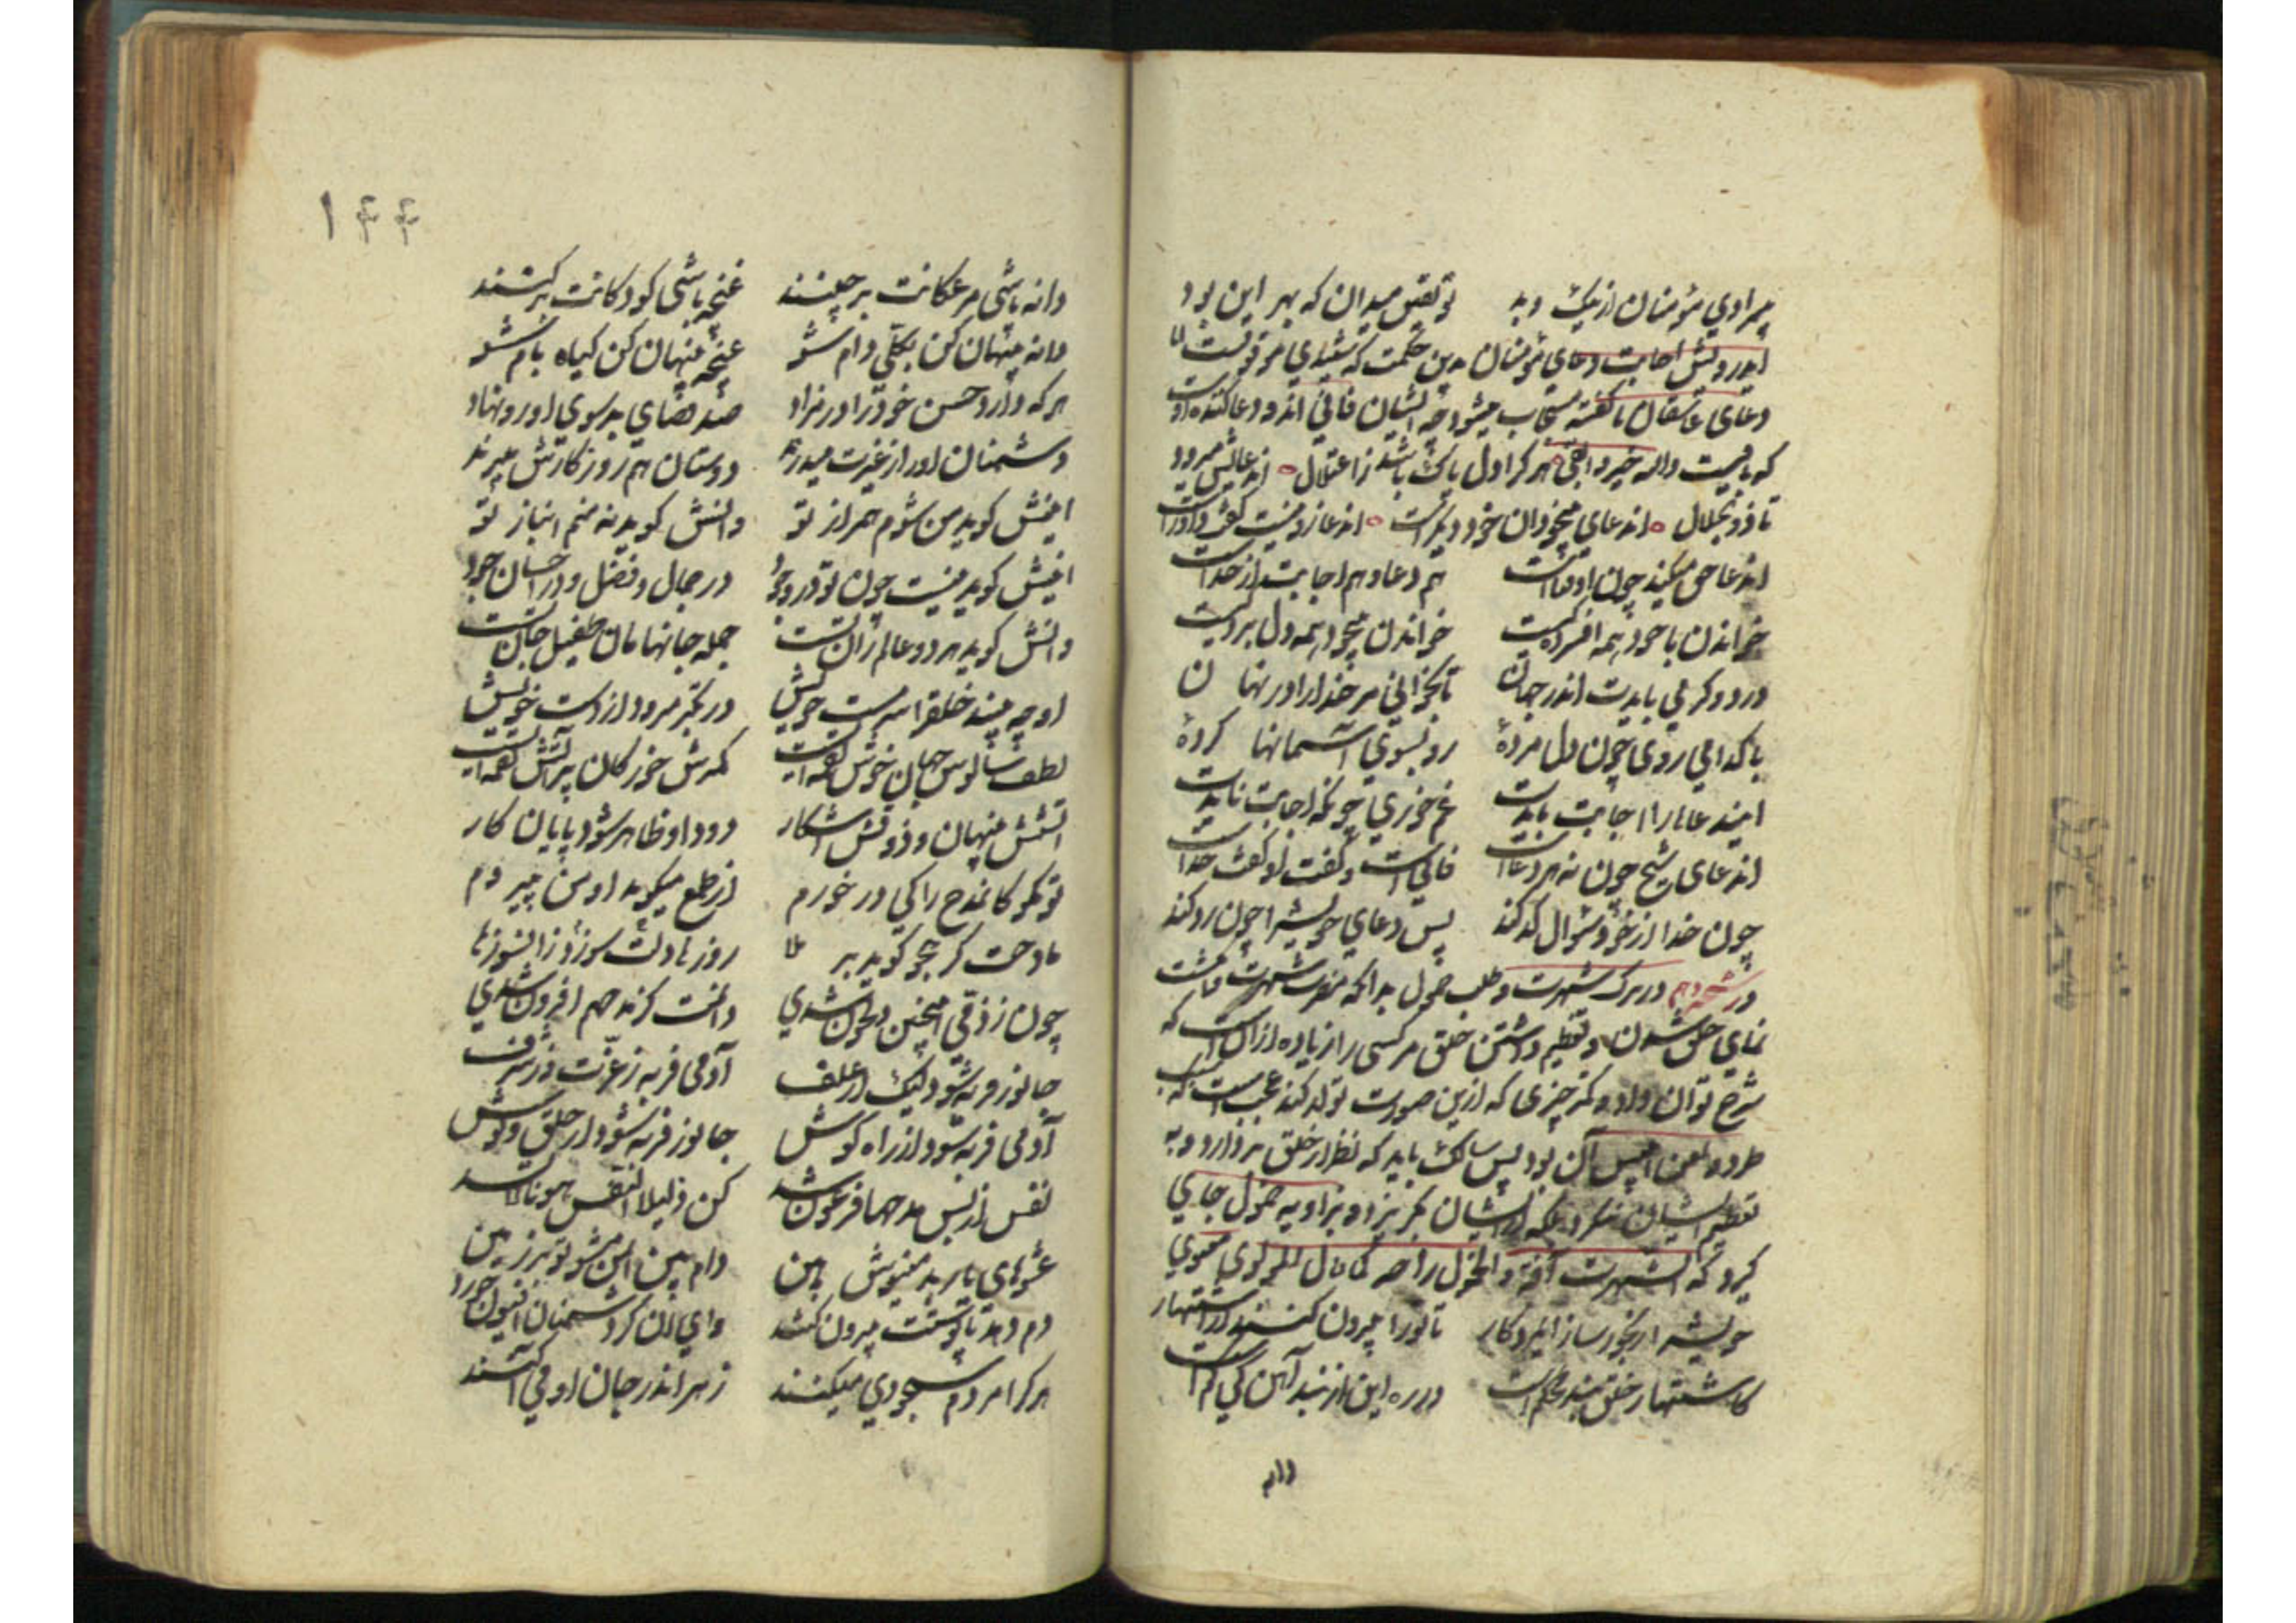 بیمرادی مؤمنان از نیک و بد تو یقین میدان که بهر این بود
ایدرویش اجابت دعای مؤمنان بدین حکمت که شنیدی موقوفست اما
دعای عاشقان ناگفته مستجاب میشود چه ایشان فانی اند و دعا کننده اوست
که باقیست والله خیر وابقی هر کرا دل پاک باشد ز اعتلال آن دعایش میرود
تا ذوالجلال آن دعای بیخودان خود دیگرست آن دعا زو نیست گفت داورست
آن دعا حق میکند چون او فناست هم دعا و هم اجابت از خداست
خواندن با خود همه افسردگیست خواندن بیخود همه دل بردگیست
درد و کرمی بایدت اندر جهان تا بخوانی مر خدا را در نهان
با کدامی روی چون دل مرده رو بسوی آسمانها کرده
این دعاها را اجابت بایدت غم خوری چونکه اجابت نایدت
آن دعای شیخ چون نه هر دعاست فانی است و گفت او گفت خداست
چون خدا از خود سؤال کد کند پس دعای خویش را چون رد کند
در ترک شهرت و طلب خمول بدانکه شهرت
نمای خلق شدن و تعظیم داشتن خلق مر کسی را زیاده از آن است که
شرح توان داد و کمتر چیزی که ازین صورت تولد کند عجب است که سبب
طرد و لعن ابلیس آن بود پس سالک باید که نظر از خلق بردارد و به
تعظیم ایشان ننگرد بلکه از ایشان بگریزد و بزاویه خمول جای
گیرد که الشهرت آفة و الخمول راحة کما قال المولوی المعنوی
خویش را رنجور ساز و زار و کار تا تورا بیرون کنند از اشتهار
کاشتهار خلق بند محکم است در ره این از بند آهن کی کم است
دانه
۱۴۴
دانه باشی مرغکانت برچینند غنچه باشی کودکانت برکنند
دانه پنهان کن بکلی دام شو غنچه پنهان کن گیاه بام شو
هر که داد او حسن خود را در مزاد صد قضای بد سوی او رو نهاد
دشمنان او را ز غیرت میدرند دوستان هم روزگارش میبرند
اینش گوید من شوم همراز تو وانش گوید نه منم انباز تو
اینش گوید نیست چون تو در وجود در جمال و فضل و در احسان و جود
وانش گوید هر دو عالم زان تست جمله جانهامان طفیل جان تست
او چو بیند خلق را سرمست خویش در تکبر میرود از دست خویش
لطف و سالوس جهان خوش لقمه ایست کمترش خور کان پر آتش لقمه ایست
آتشش پنهان و ذوقش آشکار دود او ظاهر شود پایان کار
تو مگو کان مدح را کی در خورم از طمع میگوید او من پی برم
مادحت گر هجو گوید بر ملا روزها دلت سوزد زان سوزها
چون ز ذوقی اینچنین دلخون شدی
جانور فربه شود لیک از علف آدمی فربه ز عزت وز شرف
آدمی فربه شود از راه گوش جانور فربه شود از حلق و نوش
نفس از بس مدحها فرعون شد کن ذلیل النفس هونا لا تسد
عشوهای یار بد منیوش هین دام بین ایمن مشو تو بر زمین
دم دهد تا پوستت بیرون کشد وای آن کز دشمنان افیون خورد
هر کرا مردم سجودی میکنند زهر اندر جان او می آکنند